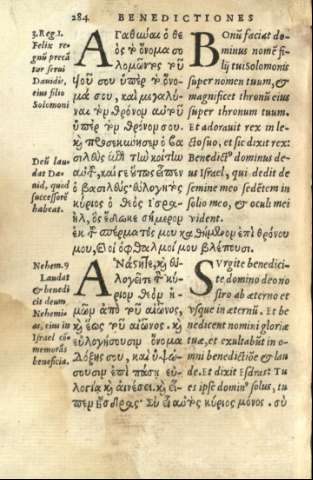 284. BENEDICTIONES
3. Reg. I.
Felix re-
gnũ precã
tur serui
Dauidis,
eius filio
Solomoni
ΑΓαθωίαι ὁ θε
ὸς τὸ ὄνομα σο
λομῶντος τοῦ
ὑοῦ σου ὑπὲρ τὸ ὄνο-
μά σου, καὶ μεγαλύ-
ναι τὸν θρόνον αὐτοῦ
ὑπὲρ τὸν θρόνον σου.
καὶ προσεκύνησεν ὁ βα-
σιλεὺς ἐπὶ τὴν κοίτην
αὐτοῦ, καί γε οὕτως εἶπεν
ὁ βασιλεύς· εὐλογητὸς
κύριος ὁ θεὸς ἰσρα-
ὴλ, ὃς ἔδωκε σήμερον
ἐκ τοῦ σπέρματός μου καθήμενον ἐπὶ θρόνου
μου, καὶ οἱ ὀφθαλμοί μου βλέπουσι.
BOnũ faciat do-
minus nomẽ fi-
lij tui Solomonis
super nomen tuum, &
magnificet thronũ eius
super thronum tuum.
Et adorauit rex in le-
ctosuo, et sic dixit rex:
Benedictꝰ dominus de-
us Israel, qui dedit de
semine meo sedẽtem in
solio meo, & oculi mei
vident.
Deũ lau-
dat Da-
uid, quod
successorẽ
habeat.
Nehem. 9
Laudat
& benedi
cit deum
Nehemi-
as, eius in
Israel cõ-
memorãs
beneficia.
ΑΝάστητε, καὶ εὐ-
λογεῖτε τὸν κύ-
ριον θεὸν ἡ-
μῶν ἀπὸ τοῦ αἰῶνος,
καὶ ἕως τοῦ αἰῶνος. καὶ
εὐλογήσουσιν ὄνομα
δόξης σου, καὶ ὑψώ-
σουσιν ἐπὶ πάσῃ εὐ-
λογίᾳ καὶ αἰνέσει. καὶ εἶ-
πεν Ἔσδρας· Σὺ εἶ αὐτὸς κύριος μόνος. σὺ
SVrgite benedici-
te domino deo no
stro ab æterno et
vsque in æternũ. Et be
nedicent nomini gloriæ
tuæ, et exaltabũt in o-
mni benedictiõe & lau
de. Et dixit Esdras: Tu
es ipse dominꝰ solus, tu